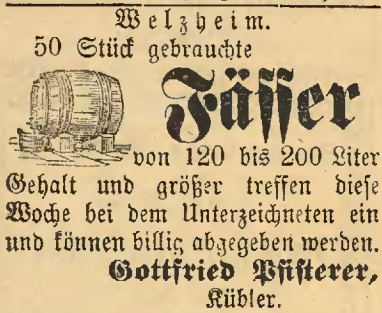 Welzheim.
50 Stück gebrauchte
Fässer
von 120 bis 200 Liter
Gehalt und größer treffen diese
Woche bei dem Unterzeichneten ein
und können billig abgegeben werden.
Gottfried Pfisterer,
Kübler.